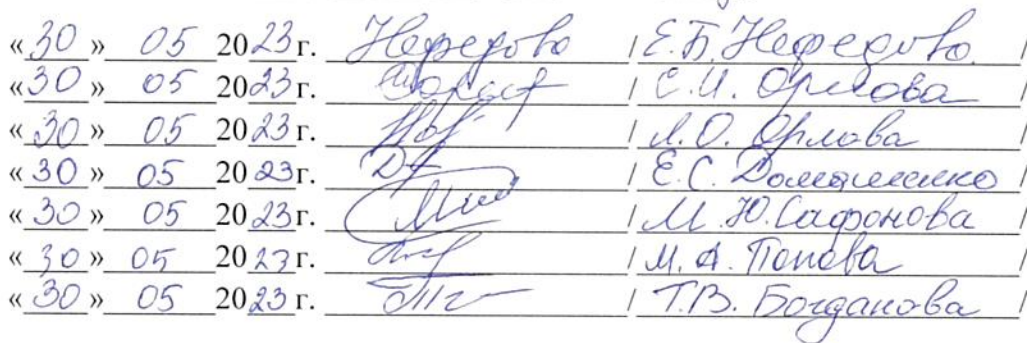 «30» 05 2023г. Нефедова / Е.Б. Нефедова /
«30» 05 2023г. / С.И. Орлова /
«30» 05 2023г. / Л.О. Орлова /
«30» 05 2023г. / Е.С. Домашенко /
«30» 05 2023г. / М.Ю. Сафонова /
«30» 05 2023г. / М.А. Попова /
«30» 05 2023г. / Т.В. Богданова /